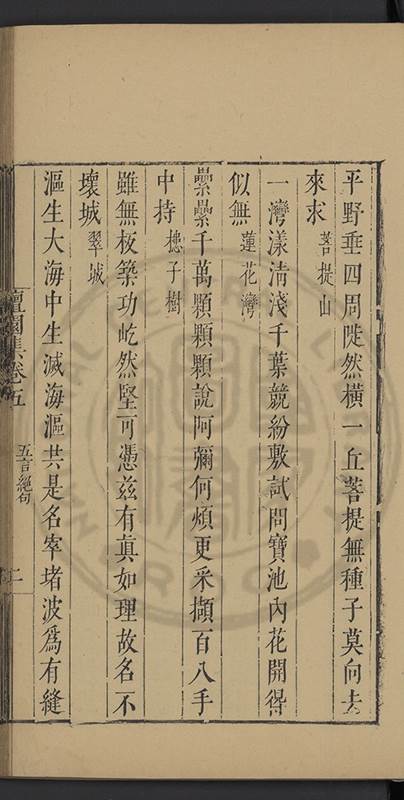 平野垂四周陡然橫一丘菩提無種子莫向去
來求菩提山
一灣漾清淺千葉競紛敷試問寶池內花開得
似無蓮花灣
纍纍千萬顆顆顆說阿彌何煩更采擷百八手
中持槵子樹
雖無板築功屹然堅可憑茲有真如理故名不
壞城翠城
漚生大海中生滅海漚共是名窣堵波為有縫
集卷五
五言絕句
二